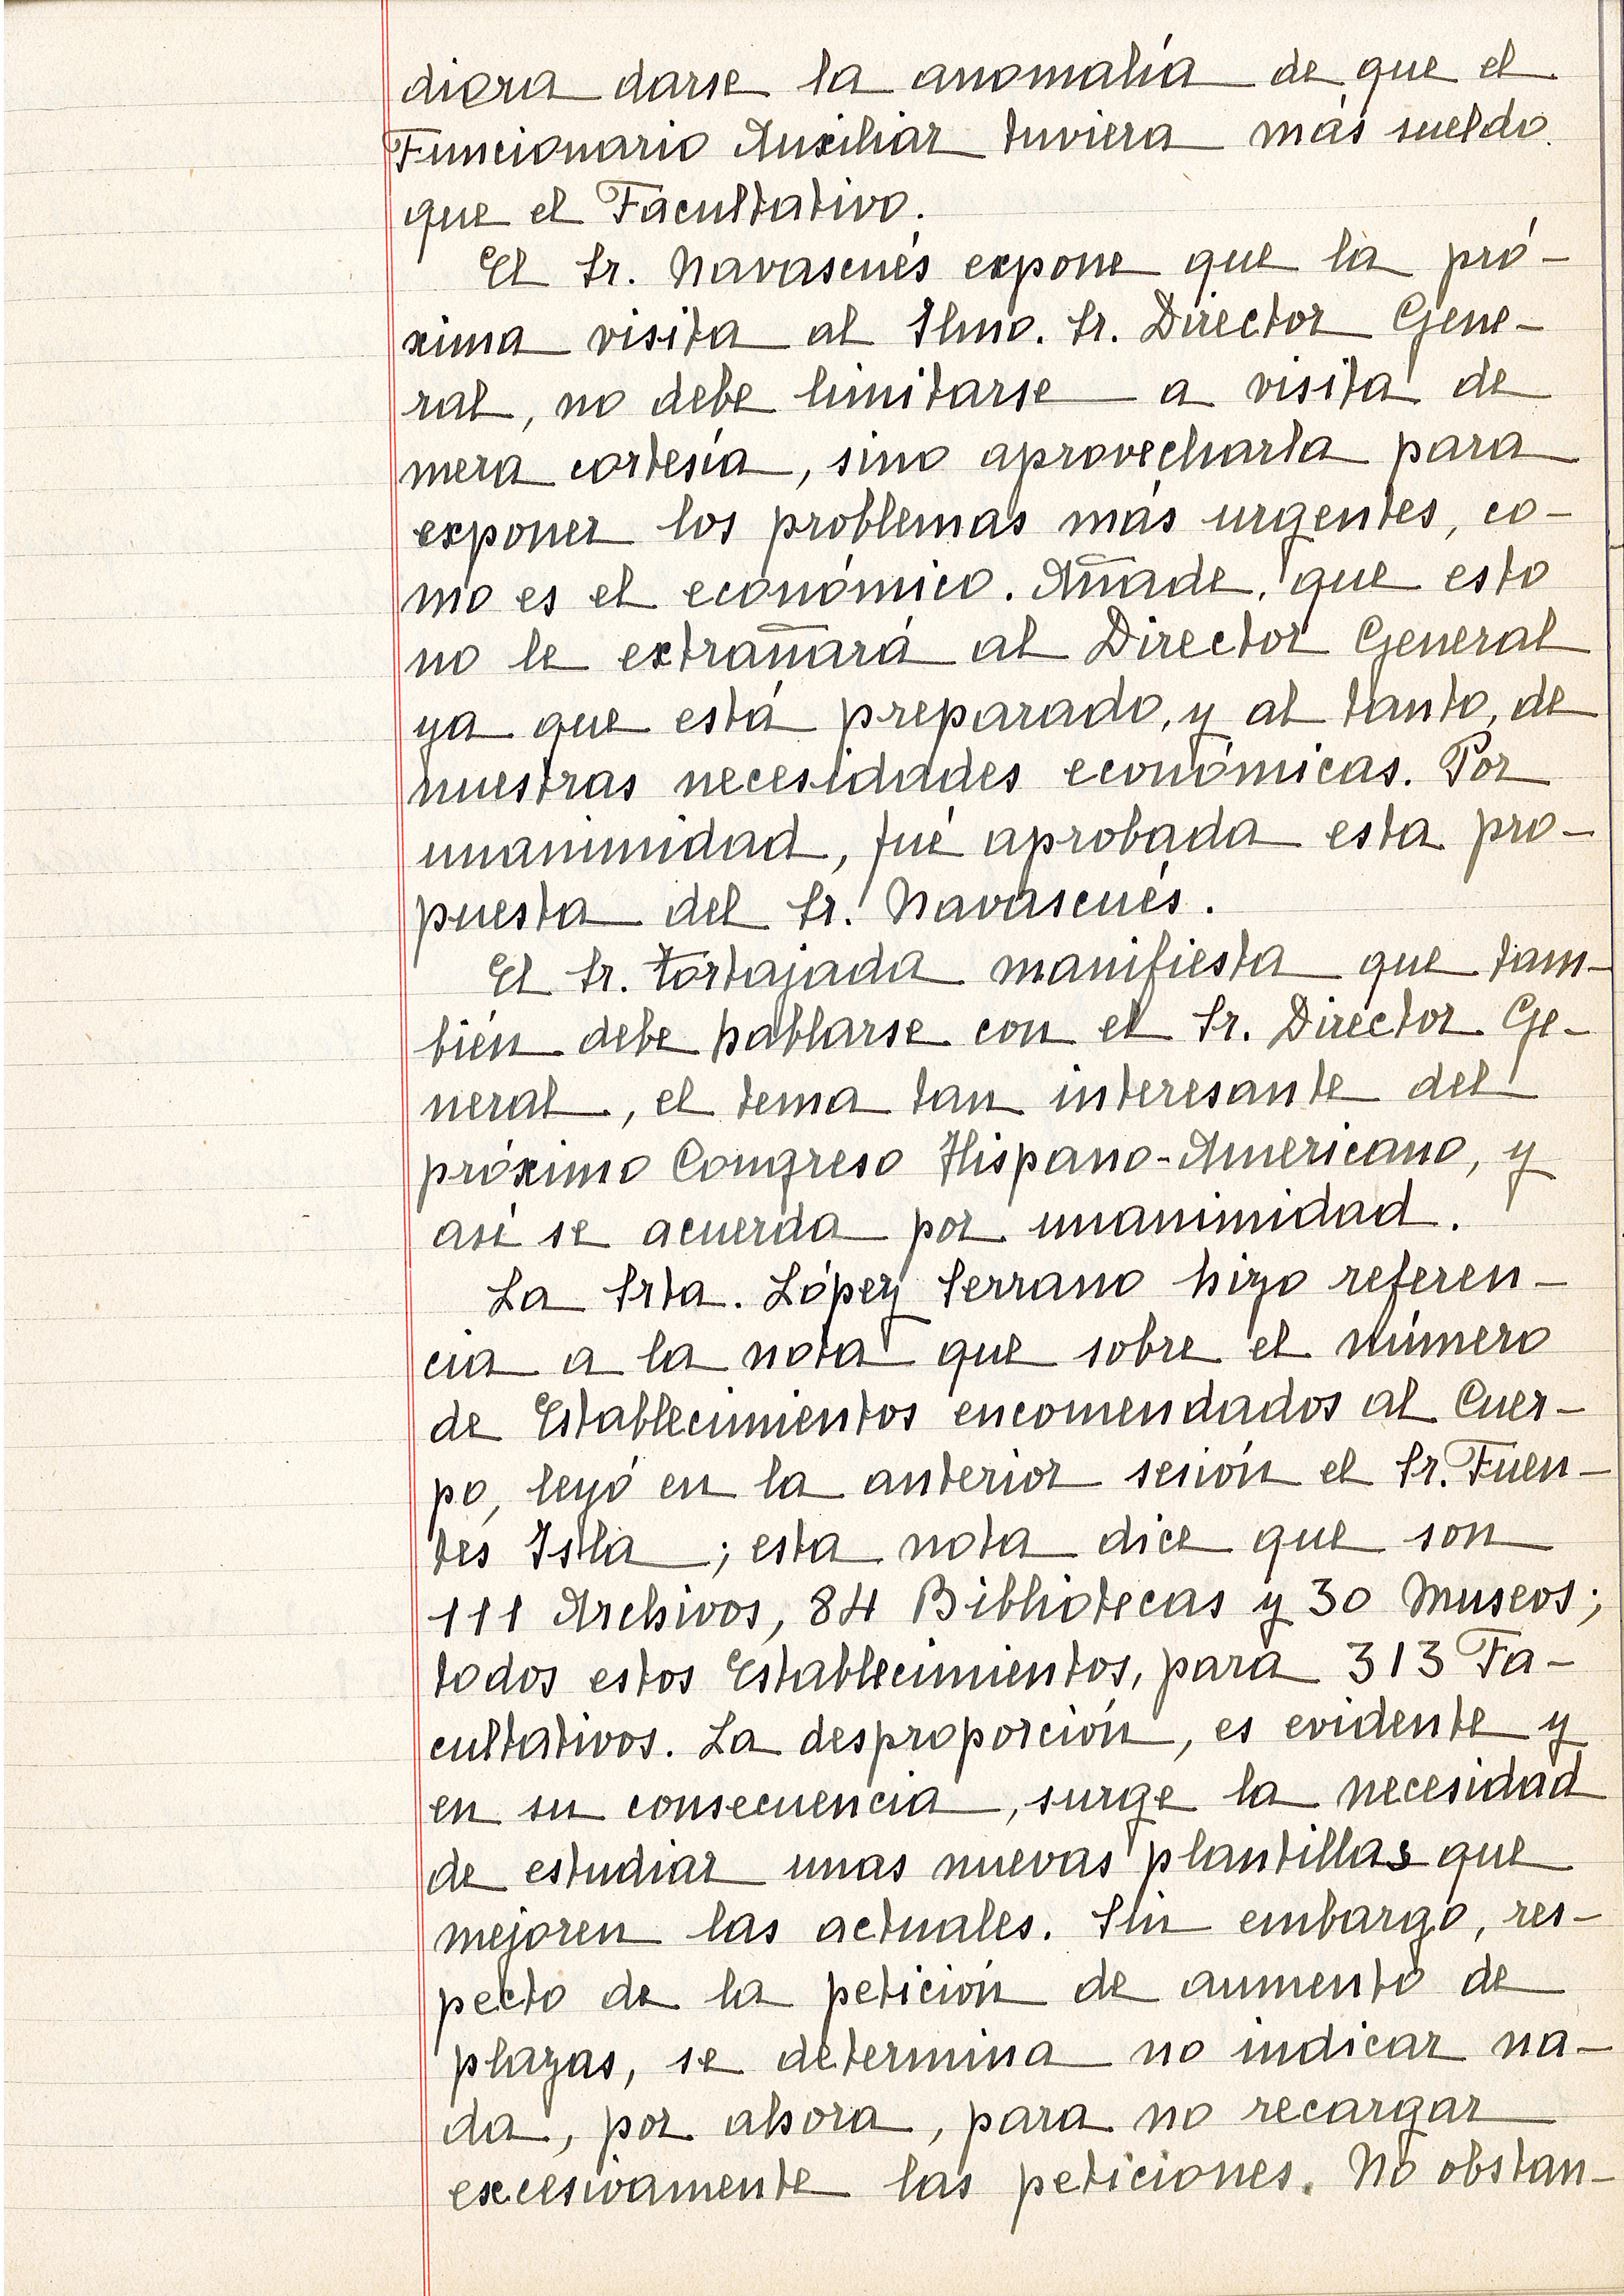 diera darse la anomalía de que el
Funcionario Auxiliar tuviera más sueldo
que el Facultativo.
El Sr. Navascués expone que la pró-
xima visita al Ilmo. Sr. Director Gene-
ral, no debe limitarse a visita de
mera cortesía, sino aprovecharla para
exponer los problemas más urgentes, co-
mo es el económico. Añade, que esto
no le extrañará al Director General
ya que está preparado, y al tanto, de
nuestras necesidades económicas. Por
unanimidad, fué aprobada esta pro-
puesta del Sr. Navascués.
El Sr. Tortajada manifiesta que tam-
bién debe hablarse con el Sr. Director Ge-
neral, el tema tan interesante del
próximo Congreso Hispano-Americano, y
así se acuerda por unanimidad.
La Srta. López Serrano hizo referen-
cia a la nota que sobre el número
de Establecimientos encomendados al Cuer-
po, leyó en la anterior sesión el Sr. Fuen-
tes Isla; esta nota dice que son
111 Archivos, 84 Bibliotecas y 30 Museos;
todos estos Establecimientos, para 313 Fa-
cultativos. La desproporción, es evidente y
en su consecuencia, surge la necesidad
de estudiar unas nuevas plantillas que
mejoren las actuales. Sin embargo, res-
pecto de la petición de aumento de
plazas, se determina no indicar na-
da, por ahora, para no recargar
excesivamente las peticiones. No obstan-